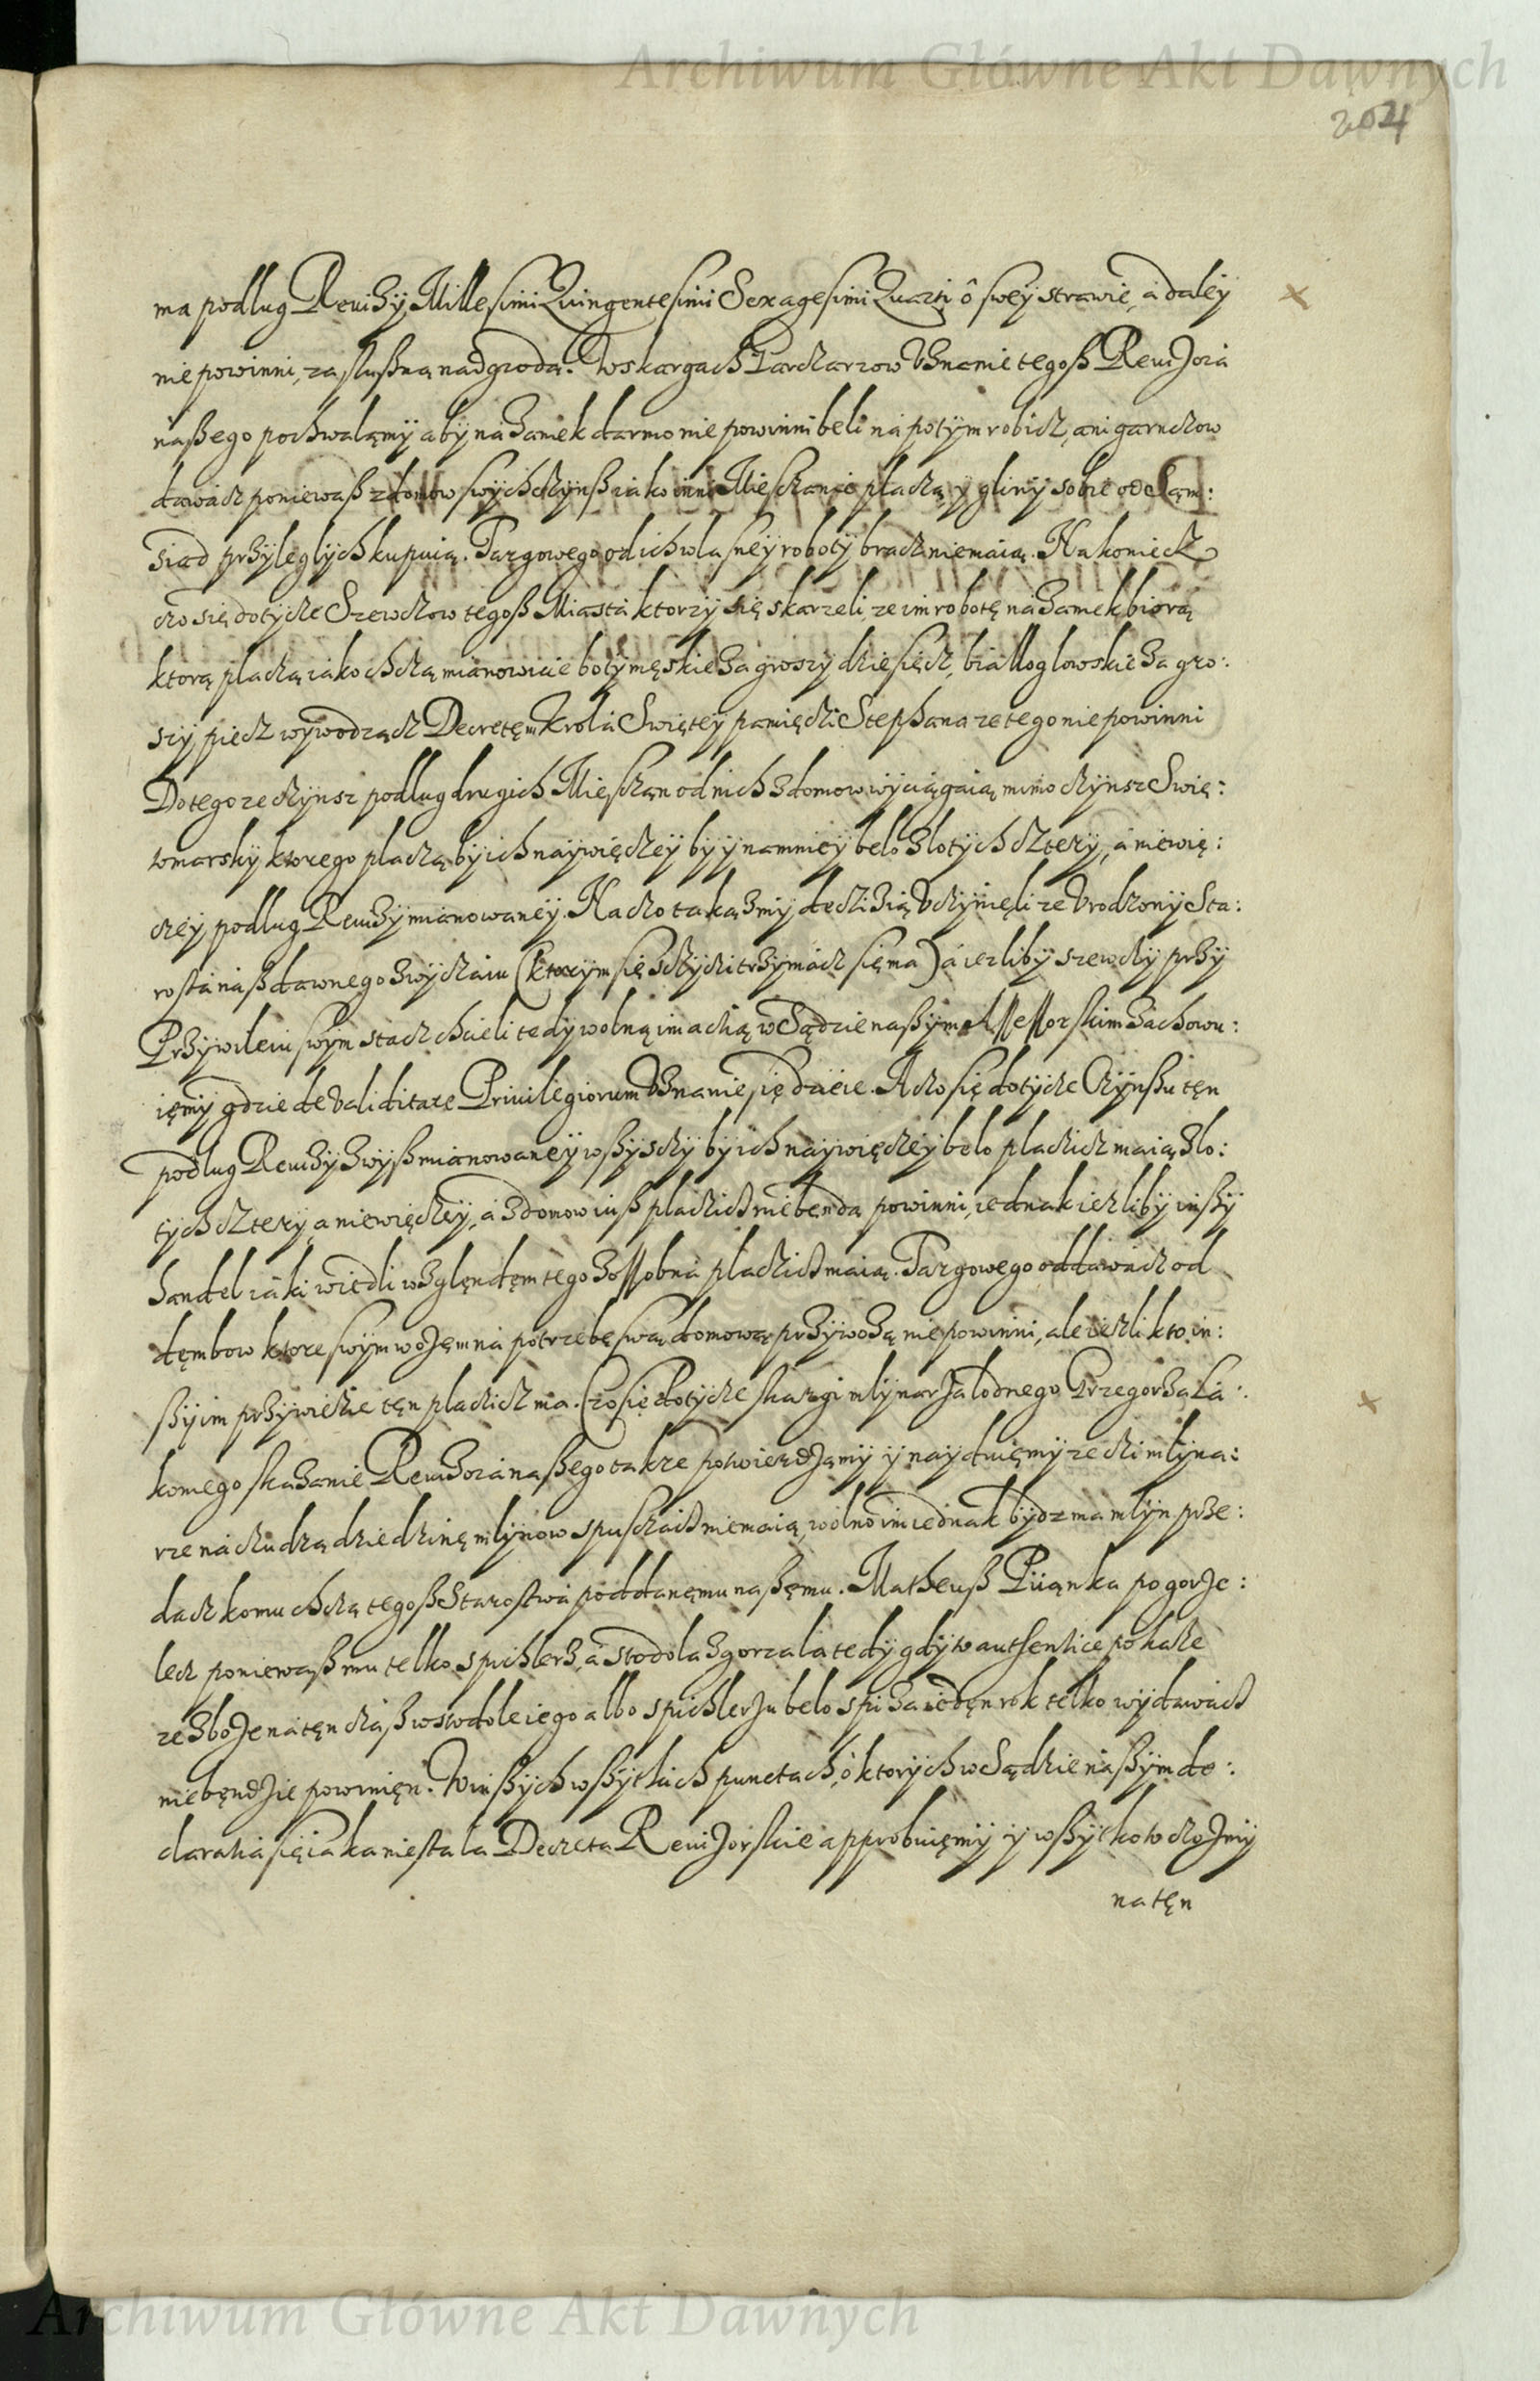 Archiwum Główne Akt Dawnych
204
ma podlug Rewizÿ Millesimi Quingentesimi Sexagesimi Quarti ô sweÿ strawie, á daleÿ
nie powinni, za slußną nadgrodą. W skargach Garcżarzow Uznanie tegoß Rewizora
naßego pochwalamÿ abÿ ná Zamek darmo nie powinni beli ná potÿm robicż, ani garncżow
dawacż poniewaß z domow swÿch cżÿnß iako inni Miescżanie placżą ÿ glinÿ sobie od Sąm:
siad przÿleglÿch kupuią. Targowego od ich wlasneÿ robotÿ bracż nie maią. Na koniecż
czo się dotÿcże Szewcżow tegoß Miasta ktorzÿ się skarzeli, ze im robotę ná Zamek biorą
ktorą placżą iako chcżą mianowicie botÿ męskie za groszÿ dziesięcż, bialloglowskie za gro:
szÿ pięcż wÿwodząć Decretem Krola Swięteÿ pamięcżi Stephana ze tego nie powinni
Do tego ze cżÿnsz podlug drugich Miescżan od nich z domow wÿciągaią mimo cżÿnsz Swię:
tomarskÿ ktorego placżą bÿ ich naÿwięceÿ bÿ ÿ namnieÿ belo zlotÿch cżterÿ, á niewię:
ceÿ podlug Rewizÿ mianowaneÿ. Na czo taką zmÿ decizią Ucżÿnięli ze Urodzonÿ Sta:
rosta náß dawnego zwÿcżaiu (ktorÿm się szcżÿci trzÿmacż się ma) á iezlibÿ szewcÿ przÿ
Przÿwileiu swÿm stacż chcieli tedÿ wolną im actią w Sądzie naßÿm Assessorskim zachowu:
ięmÿ gdzie de validitate Privilegiorum Uznanie się dzieie. A czo się dotÿcże Cżÿnßu tęn
podlug Rewizÿ zwÿß mianowaneÿ wßÿscÿ bÿ ich naÿwięceÿ belo placicż maią zlo:
tÿch cżterÿ, a niewięceÿ, á z domow iuß placicż nie bęndą powinni, iednak iezlibÿ inßÿ
handel iáki wiedli wzglęndęm tego zossobná placicż maią. Targowego oddawacż od
dęmbow ktore swÿm wozęm ná potrzebę swą domową przÿwożą nie powinni, ale iezli kto in:
ßÿ im przÿwiezie tęn placicż ma. Czo się dotÿcże skargi mlÿnarza lodnego Grzegorza La:
komego skazanie Rewizora naßego takze potwierdzamÿ ÿ naÿduięmÿ ze ci mlÿna:
rze ná cudzą dziedzinę mlÿnow spuscżacż nie maią, wolno im iednak bÿdz ma mlÿn prze:
dacż komu chcżą tegoß Starostwa poddanęmu naßęmu. Matheuß Piianka pogorze:
lecż poniewaß mu telko spichlerz, á stodola zgorzala tedÿ gdÿ to authentice pokaże
ze zboże na tęn cżaß w stodole iego albo spichlerzu belo spi za iedęn rok telko wÿdawacż
nie bęndzie powinięn. W inßÿch wßÿtkich punctach, o ktorÿch w Sądzie naßÿm de:
claratia się iaka nie stala Decreta Rewizorskie approbuięmÿ ÿ wßÿtko to czo zmÿ
na tęn
Archiwum Główne Akt Dawnych